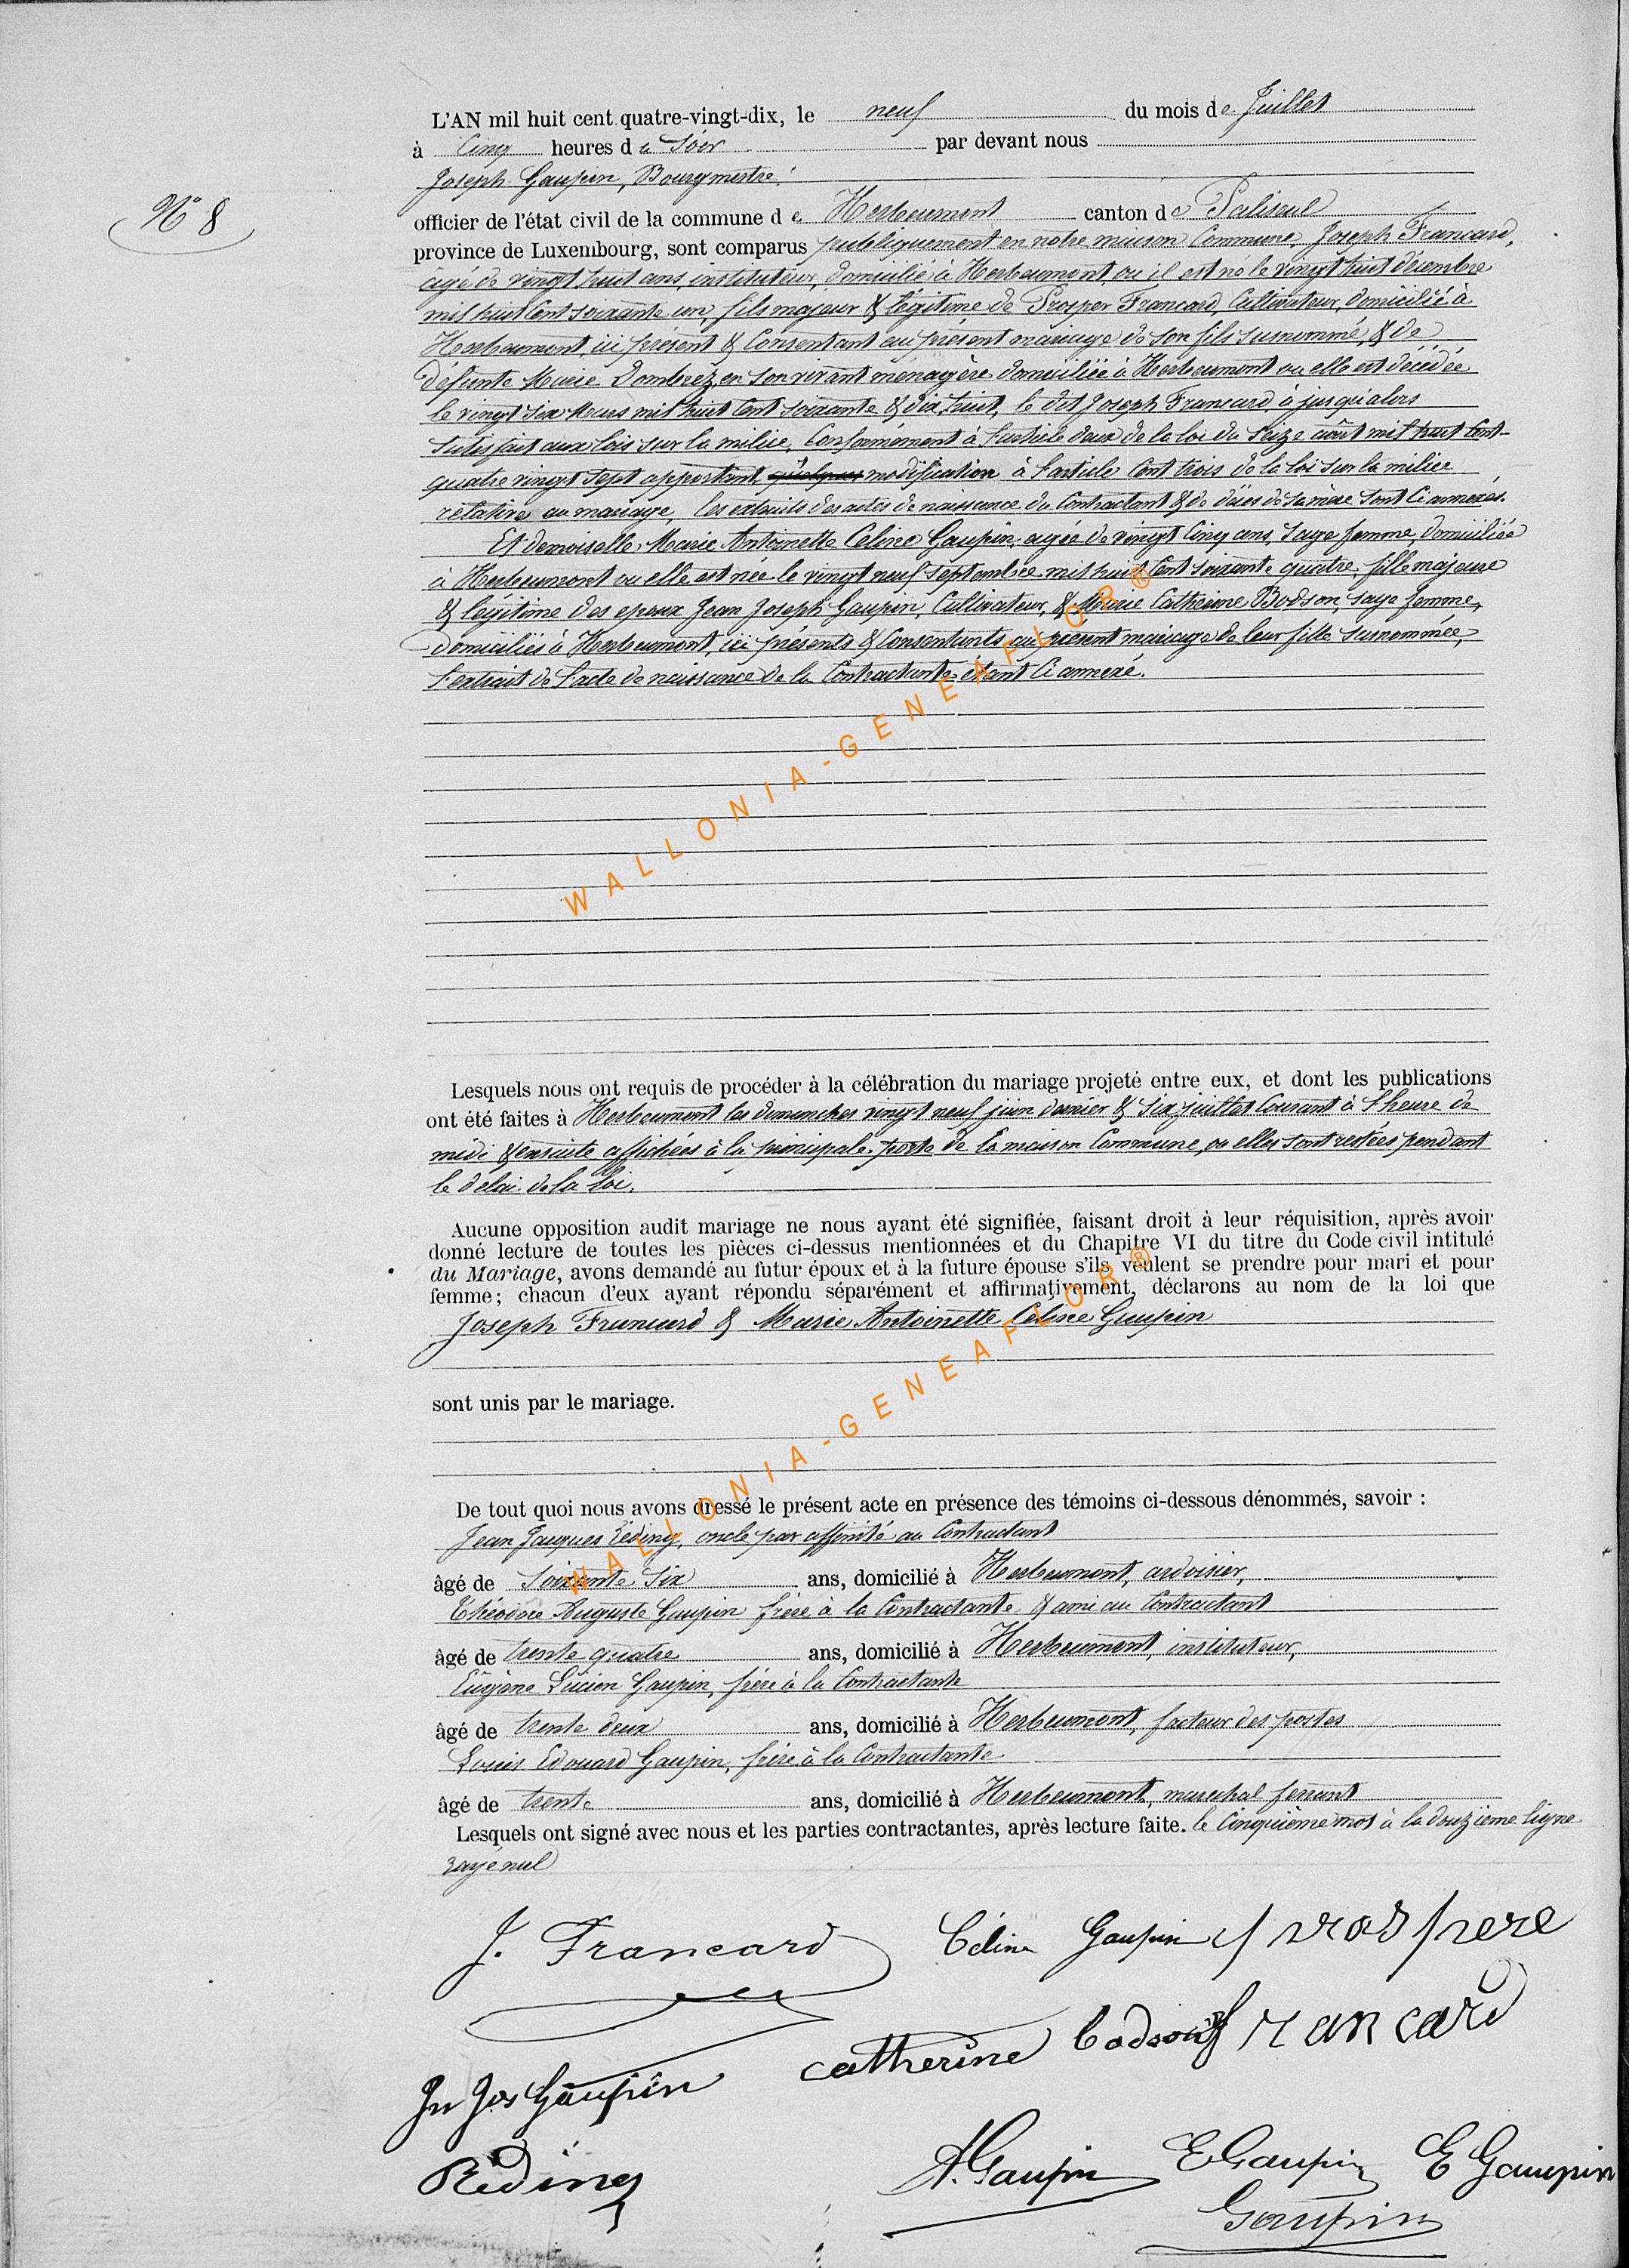 L'AN mil huit cent quatre-vingt-dix, le neuf du mois de Juillet
à Cinq heures du Soir par devant nous
Joseph Gaupin, Bourgmestre
N° 8
officier de l'état civil de la commune de Herbeumont canton de Paliseul
province de Luxembourg, sont comparus publiquement en notre maison Commune, Joseph Francard,
âgé de vingt huit ans, instituteur, domicilié à Herbeumont, ou il est né le vingt huit décembre
mil huit Cent soixante un, fils majeur & légitime de Prosper Francard, Cultivateur, domicilié à
Herbeumont, ici présent & Consentant au présent mariage de son fils susnommé, & de
défunte Marie Dombrez, en son vivant ménagère domiciliée à Herbeumont ou elle est décédée
le vingt six Mars mil huit Cent soixante & dix huit, le dit Joseph Francard, à jusqu'alors
satisfait aux lois sur la milice, Conformément à l'article deux de la loi du Seize août mil huit Cent-
quatre vingt sept apportant quelques modification à l'article Cent trois de la loi sur la milice
relative au mariage, les extraits des actes de naissance du Contractant & de décès de sa mère sont Ci annexés.
Et demoiselle Marie Antoinette Celine Gaupin, agée de vingt Cinq ans, Sage femme, domiciliée
à Herbeumont ou elle est née le vingt neuf Septembre mil huit Cent soixante quatre, fille majeure
& légitime des epoux Jean Joseph Gaupin, Cultivateur, & Marie Catherine Bodson, sage femme,
domiciliés à Herbeumont, ici présents & Consentants au présent mariage de leur fille susnommée,
l'extrait de l'acte de naissance de la Contractante étant Ci annexé.
WALLONIA-GENEAFLOR®
Lesquels nous ont requis de procéder à la célébration du mariage projeté entre eux, et dont les publications
ont été faites à Herbeumont les dimanches vingt neuf juin dernier & Six juillet Courant à l'heure de
midi & ensuite affichées à la principale porte de la maison Commune, ou elles sont restées pendant
le délai de la loi.
Aucune opposition audit mariage ne nous ayant été signifiée, faisant droit à leur réquisition, après avoir
donné lecture de toutes les pièces ci-dessus mentionnées et du Chapitre VI du titre du Code civil intitulé
du Mariage, avons demandé au futur époux et à la future épouse s'ils veulent se prendre pour mari et pour
femme; chacun d'eux ayant répondu séparément et affirmativement, déclarons au nom de la loi que
Joseph Francard & Marie Antoinette Celine Gaupin
sont unis par le mariage.
WALLONIA-GENEAFLOR®
De tout quoi nous avons dressé le présent acte en présence des témoins ci-dessous dénommés, savoir :
Jean Jacques Réding, oncle par affinité au Contractant
âgé de Soixante Six ans, domicilié à Herbeumont, ardoisier,
Théodore Auguste Gaupin frère à la Contractante & ami au Contractant
âgé de trente quatre ans, domicilié à Herbeumont, instituteur,
Eugène Lucien Gaupin, frère à la Contractante
âgé de trente deux ans, domicilié à Herbeumont, facteur des postes
Louis Edouard Gaupin, frère à la Contractante
âgé de trente ans, domicilié à Herbeumont, marechal ferrant
Lesquels ont signé avec nous et les parties contractantes, après lecture faite. le Cinquième mot à la douzième ligne
rayé nul
J. Francard Céline Gaupin prospere
Jn Jos Gaupin catherine bodson francard
Réding A. Gaupin E Gaupin E Gaupin
Gaupin